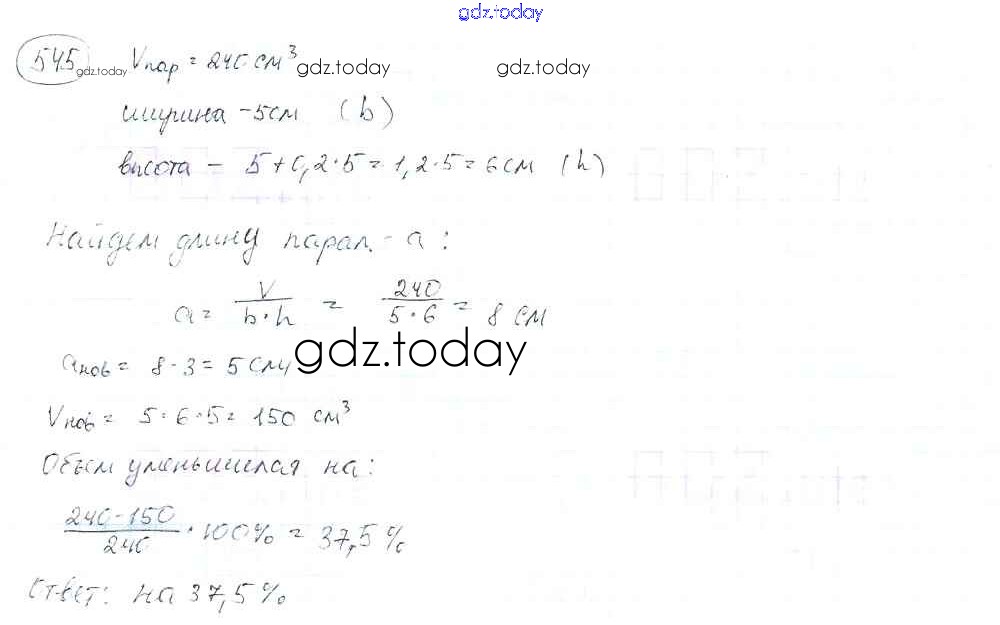 gdz.today
545 gdz.today Vпар = 240 см³ gdz.today gdz.today
ширина - 5см (b)
высота - 5+0,2·5=1,2·5=6см (h)
Найдем длину парал.- a:
a = V/(b·h) = 240/(5·6) = 8 см
gdz.today
aнов = 8-3=5см
Vнов = 5·6·5= 150 см³
Объем уменьшился на:
(240-150)/240 · 100% = 37,5%
Ответ: на 37,5%